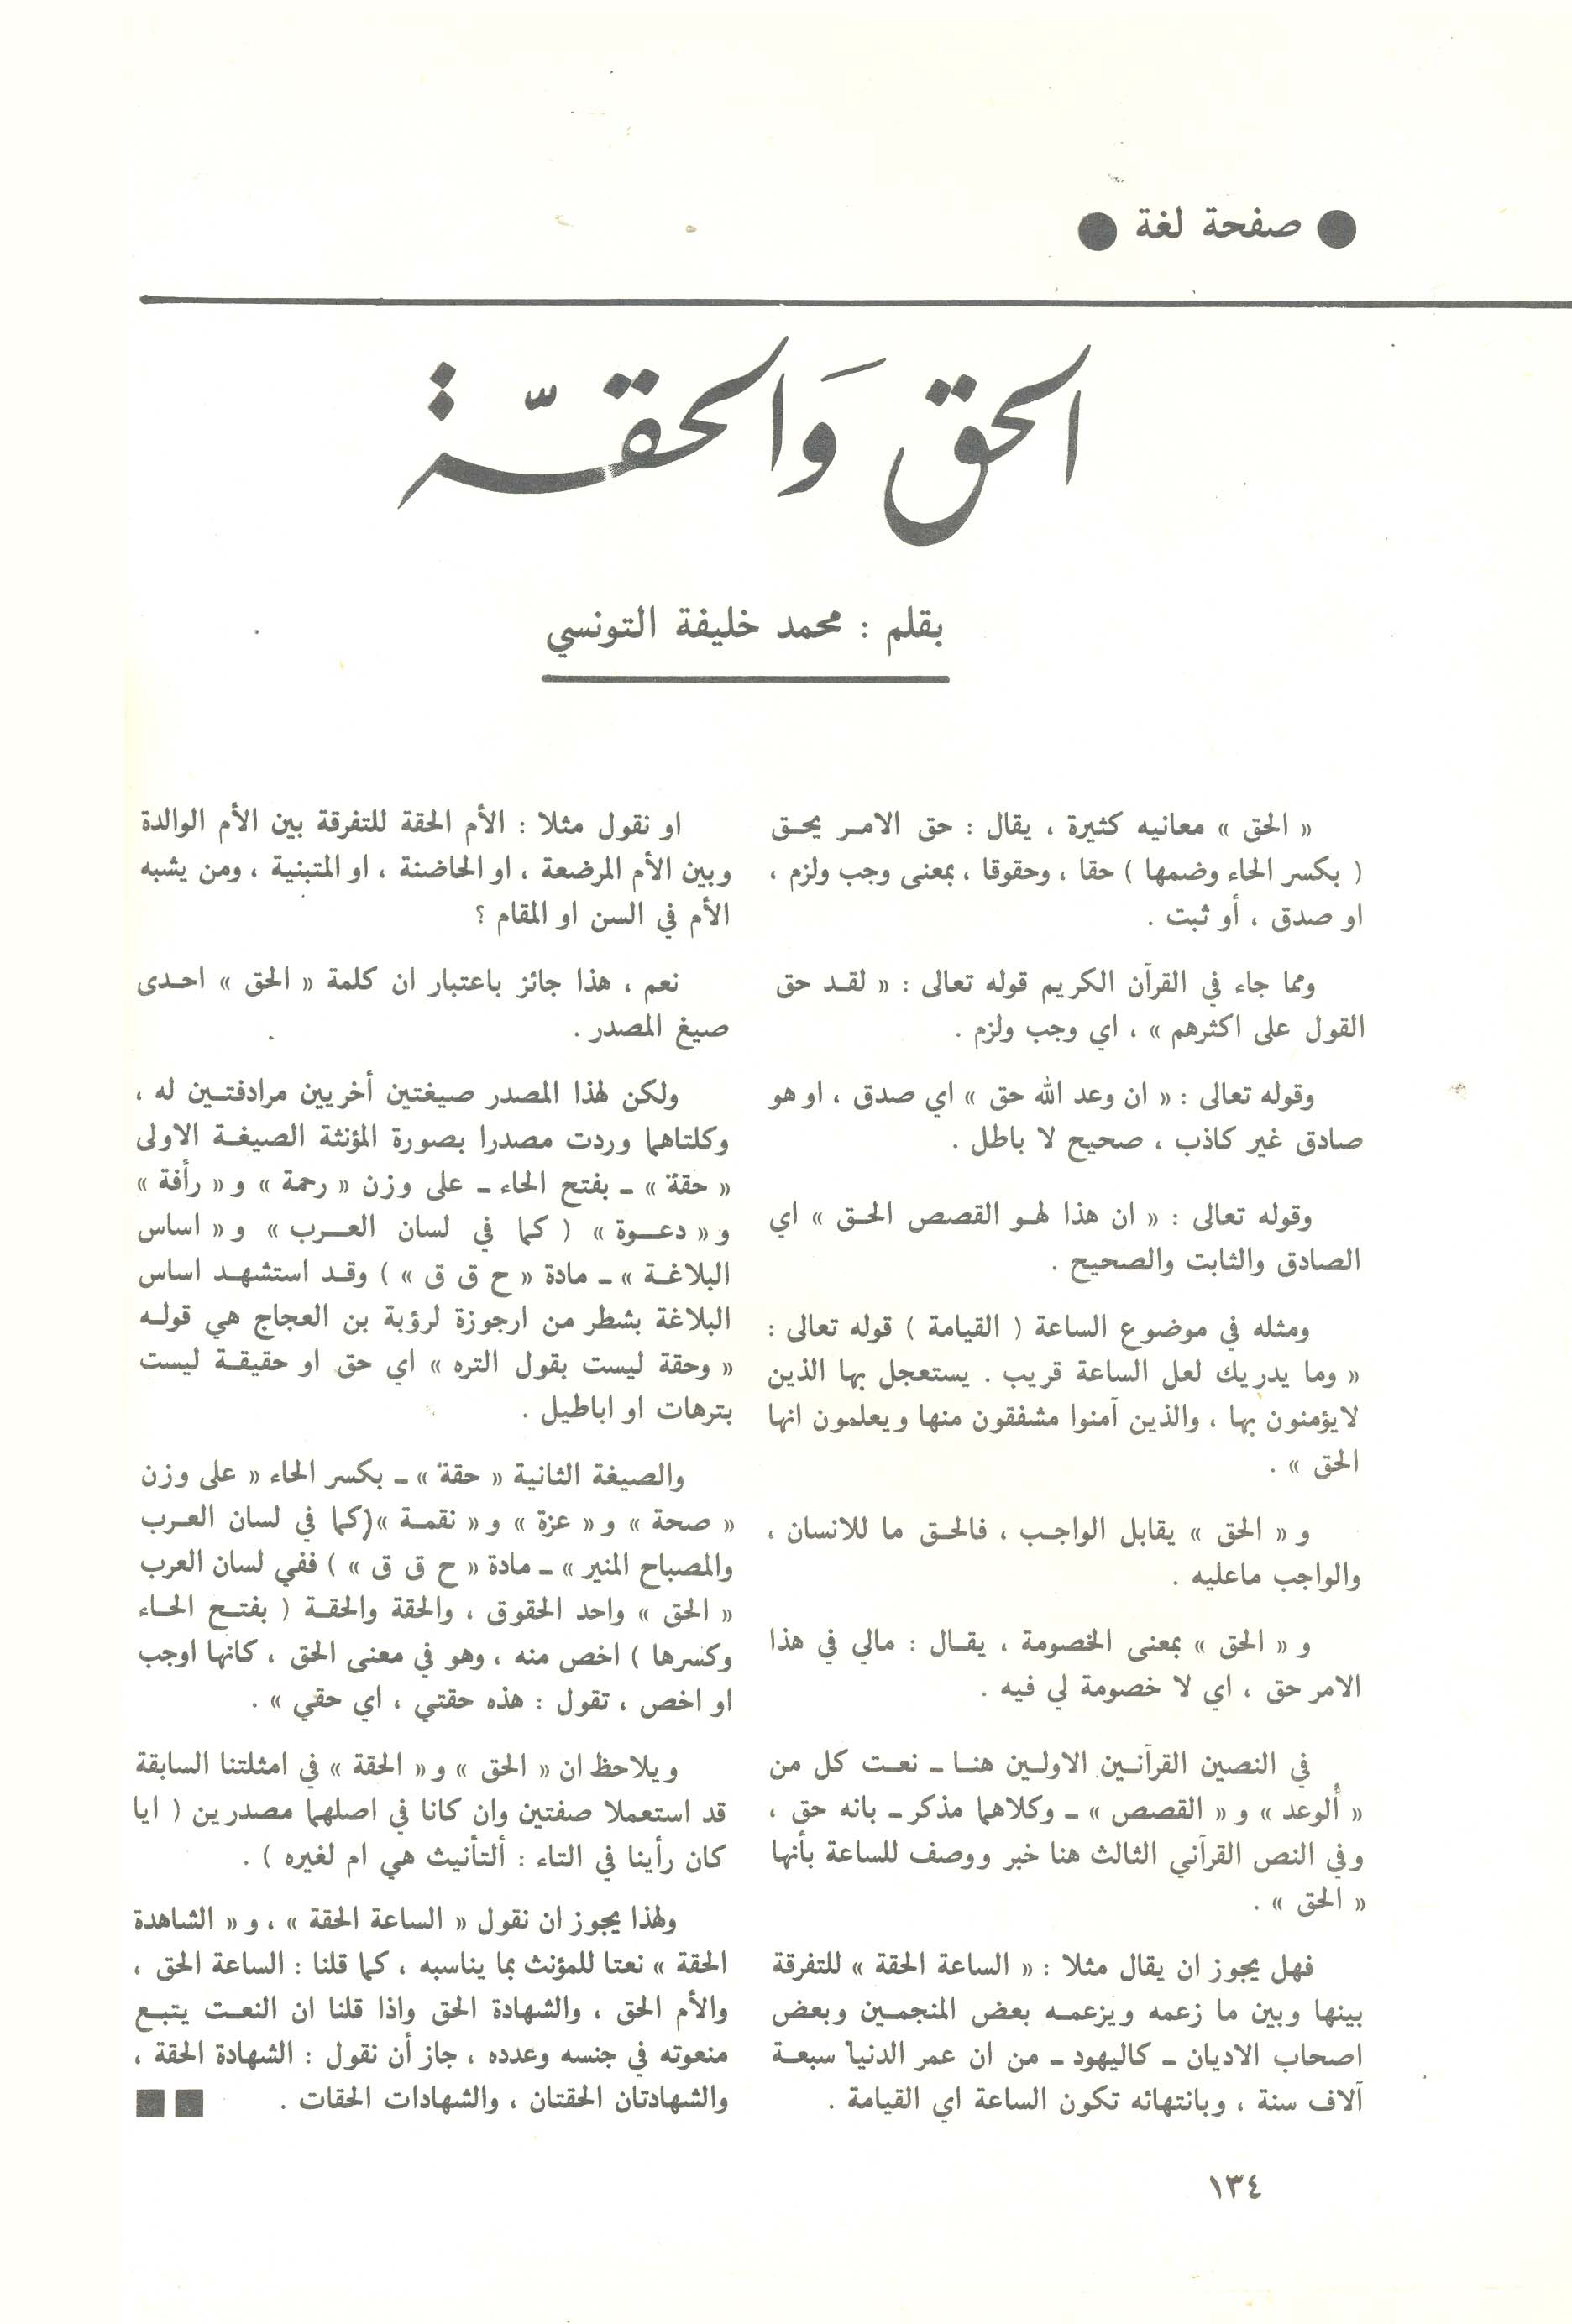 ● صفحة لغة ●
الحق وَالحقّة
بقلم : محمد خليفة التونسي
« الحق » معانيه كثيرة ، يقال : حق الامر يحق
( بكسر الحاء وضمها ) حقا ، وحقوقا ، بمعنى وجب ولزم ،
او صدق ، أو ثبت .
ومما جاء في القرآن الكريم قوله تعالى : « لقد حق
القول على اكثرهم » ، اي وجب ولزم .
وقوله تعالى : « ان وعد الله حق » اي صدق ، او هو
صادق غير كاذب ، صحيح لا باطل .
وقوله تعالى : « ان هذا لهو القصص الحق » اي
الصادق والثابت والصحيح .
ومثله في موضوع الساعة ( القيامة ) قوله تعالى :
« وما يدريك لعل الساعة قريب . يستعجل بها الذين
لايؤمنون بها ، والذين آمنوا مشفقون منها ويعلمون انها
الحق » .
و « الحق » يقابل الواجب ، فالحق ما للانسان ،
والواجب ماعليه .
و « الحق » بمعنى الخصومة ، يقال : مالي في هذا
الامر حق ، اي لا خصومة لي فيه .
في النصين القرآنين الاولين هنا ـ نعت كل من
« ألوعد » و « القصص » ـ وكلاهما مذكر ـ بانه حق ،
وفي النص القرآني الثالث هنا خبر ووصف للساعة بأنها
« الحق » .
فهل يجوز ان يقال مثلا : « الساعة الحقة » للتفرقة
بينها وبين ما زعمه ويزعمه بعض المنجمين وبعض
اصحاب الاديان ـ كاليهود ـ من ان عمر الدنيا سبعة
آلاف سنة ، وبانتهائه تكون الساعة اي القيامة .
او نقول مثلا : الأم الحقة للتفرقة بين الأم الوالدة
وبين الأم المرضعة ، او الحاضنة ، او المتبنية ، ومن يشبه
الأم في السن او المقام ؟
نعم ، هذا جائز باعتبار ان كلمة « الحق » احدى
صيغ المصدر .
ولكن لهذا المصدر صيغتين أخريين مرادفتين له ،
وكلتاهما وردت مصدرا بصورة المؤنثة الصيغة الاولى
« حقة » ـ بفتح الحاء ـ على وزن « رحمة » و « رأفة »
و « دعوة » ( كما في لسان العرب » و « اساس
البلاغة » ـ مادة « ح ق ق » ) وقد استشهد اساس
البلاغة بشطر من ارجوزة لرؤبة بن العجاج هي قوله
« وحقة ليست بقول التره » اي حق او حقيقة ليست
بترهات او اباطيل .
والصيغة الثانية « حقة » ـ بكسر الحاء « على وزن
« صحة » و « عزة » و « نقمة »(كما في لسان العرب
والمصباح المنير » ـ مادة « ح ق ق » ) ففي لسان العرب
« الحق » واحد الحقوق ، والحقة والحقة ( بفتح الحاء
وكسرها ) اخص منه ، وهو في معنى الحق ، كانها اوجب
او اخص ، تقول : هذه حقتي ، اي حقي » .
ويلاحظ ان « الحق » و « الحقة » في امثلتنا السابقة
قد استعملا صفتين وان كانا في اصلهما مصدرين ( ايا
كان رأينا في التاء : ألتأنيث هي ام لغيره ) .
ولهذا يجوز ان نقول « الساعة الحقة » ، و « الشاهدة
الحقة » نعتا للمؤنث بما يناسبه ، كما قلنا : الساعة الحق ،
والأم الحق ، والشهادة الحق واذا قلنا ان النعت يتبع
منعوته في جنسه وعدده ، جاز أن نقول : الشهادة الحقة ،
والشهادتان الحقتان ، والشهادات الحقات . ■■
١٣٤